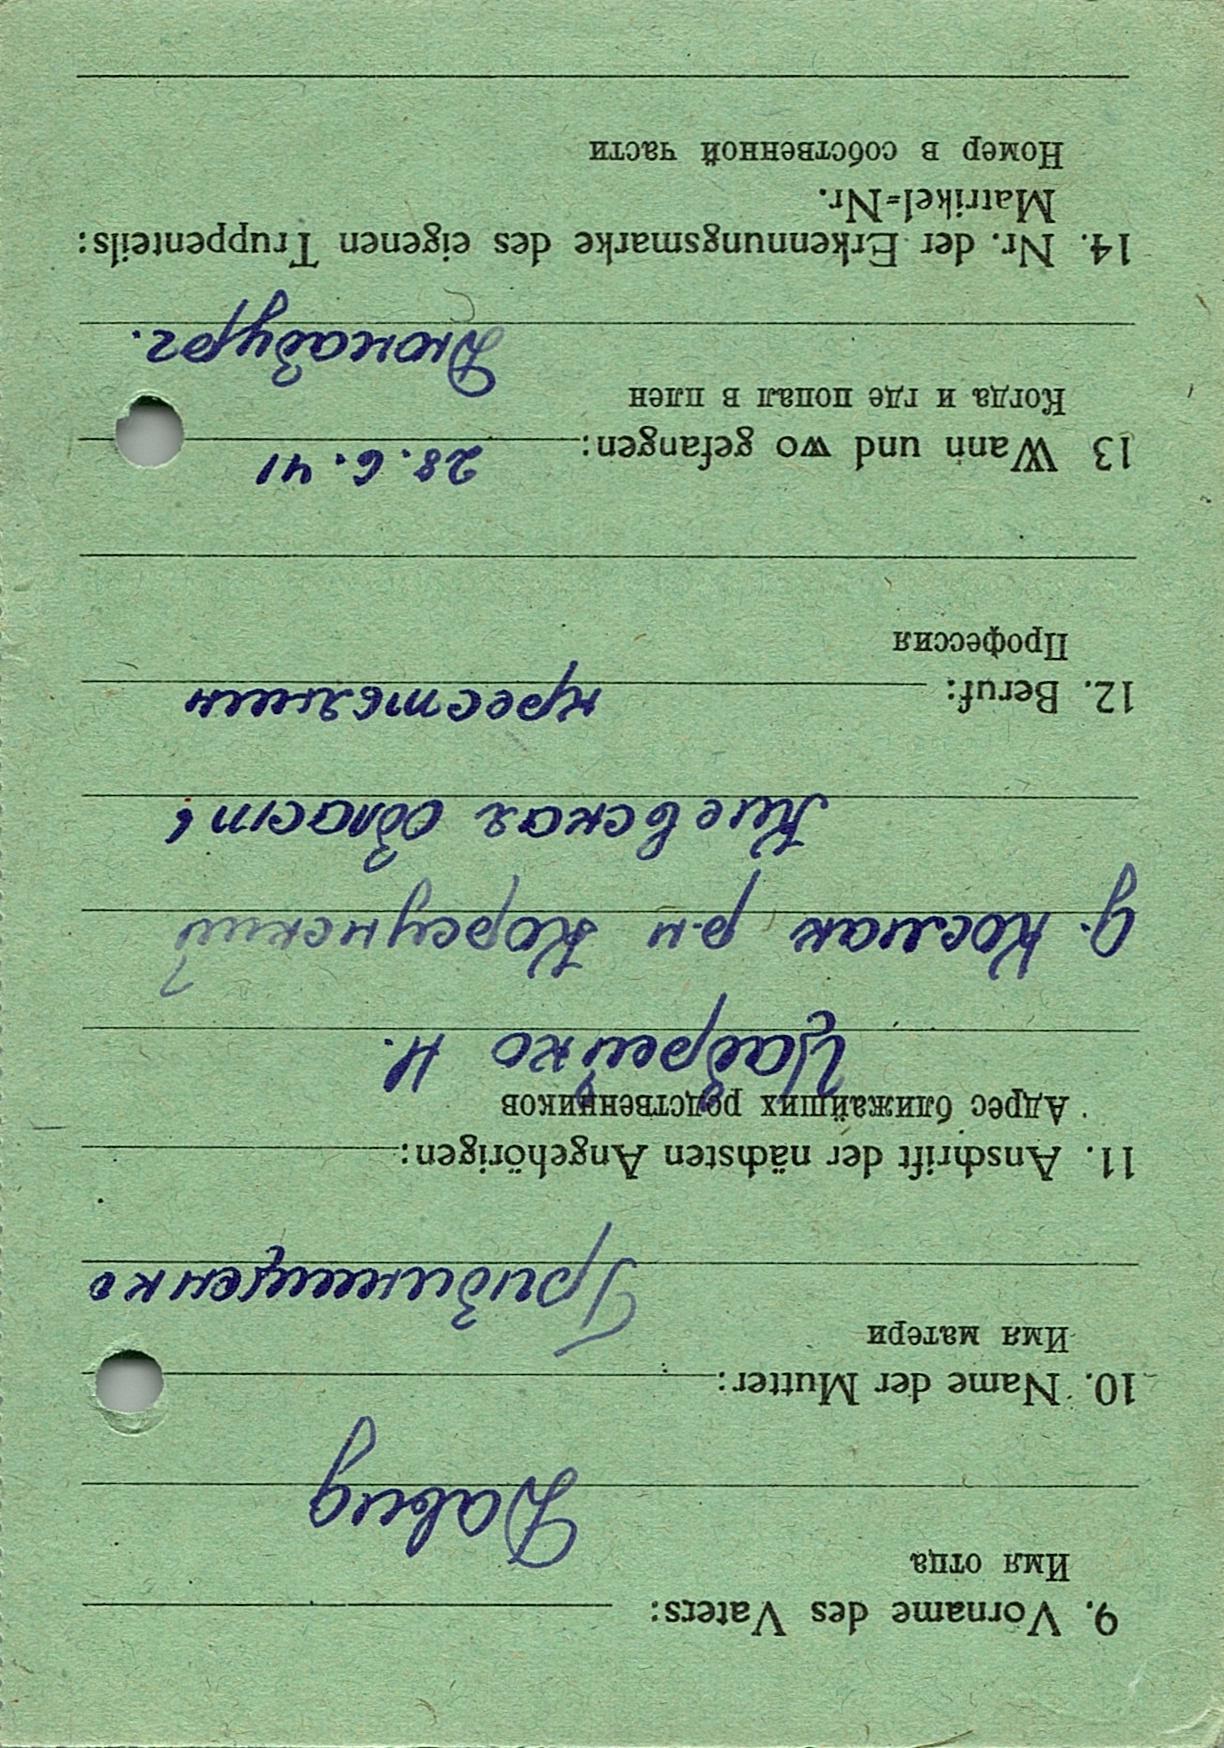 9. Vorname des Vaters:
Имя отца
Давид
10. Name der Mutter:
Имя матери
Гридинищенко
11. Anschrift der nächsten Angehörigen:
Адрес ближайших родственников
Н.
д. р-н Корсунский
Киевская область
12. Beruf:
Профессия
крестьянин
13 Wann und wo gefangen:
28.6.41
Когда и где попал в плен
Дюнабург.
14. Nr. der Erkennungsmarke des eigenen Truppenteils:
Matrikel=Nr.
Номер в собственной части